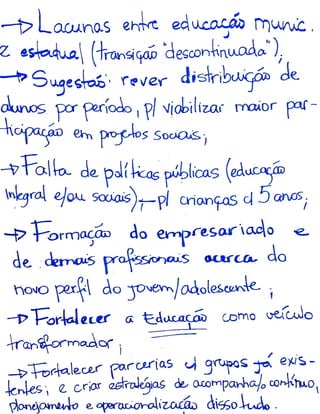 → Lacunas entre educação munic.
e estadual (transição "descontinuada");
→ Sugestão: rever distribuição de
alunos por período, p/ viabilizar maior par-
ticipação em projetos sociais;
→ Falta de políticas públicas (educação
integral e/ou sociais) → p/ crianças c/ 5 anos;
→ Formação do empresariado e
de demais profissionais acerca do
novo perfil do jovem/adolescente;
→ Fortalecer a Educação como veículo
transformador;
→ Fortalecer parcerias c/ grupos já exis-
tentes; e criar estratégias de acompanha/o contínuo,
planejamento e operacionalização disso tudo.